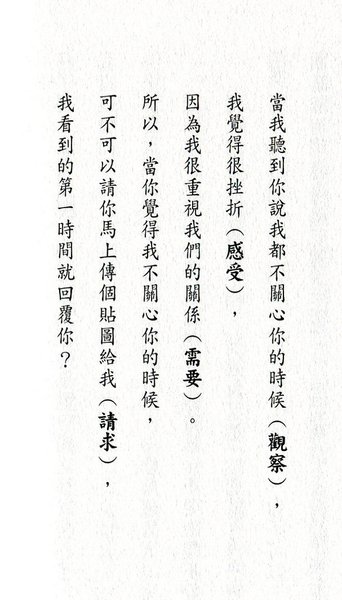 當我聽到你說我都不關心你的時候（觀察），
我覺得很挫折（感受），
因為我很重視我們的關係（需要）。
所以，當你覺得我不關心你的時候，
可不可以請你馬上傳個貼圖給我（請求），
我看到的第一時間就回覆你？